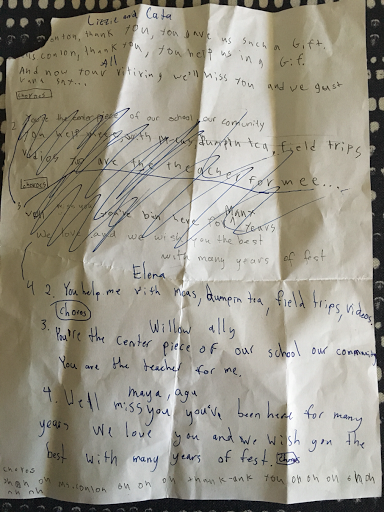 Lizzie and Cata
thank you, you gave us such a Gift.
thank you, you help us in a Gif.
All
And now your retiring we'll miss you and we gust
[chores]
2. You're the center piece of our school, our community
You help me with dumpin tea, field trips
vidios You are the theacher for mee...
[chores]
3. Many
well you've bin here for years
We love and we wish you the best
with many years of fest
Elena
4 2. You help me with dumpin tea, field trips, videos.
[chores]
Willow ally
3. You're the center piece of our school our community
You are the teacher for me.
maya, aga
4. We'll miss you you've been here for many
years We love you and we wish you the
best with many years of fest. [chores]
chores
oh oh oh thank-ank you oh oh oh oh oh